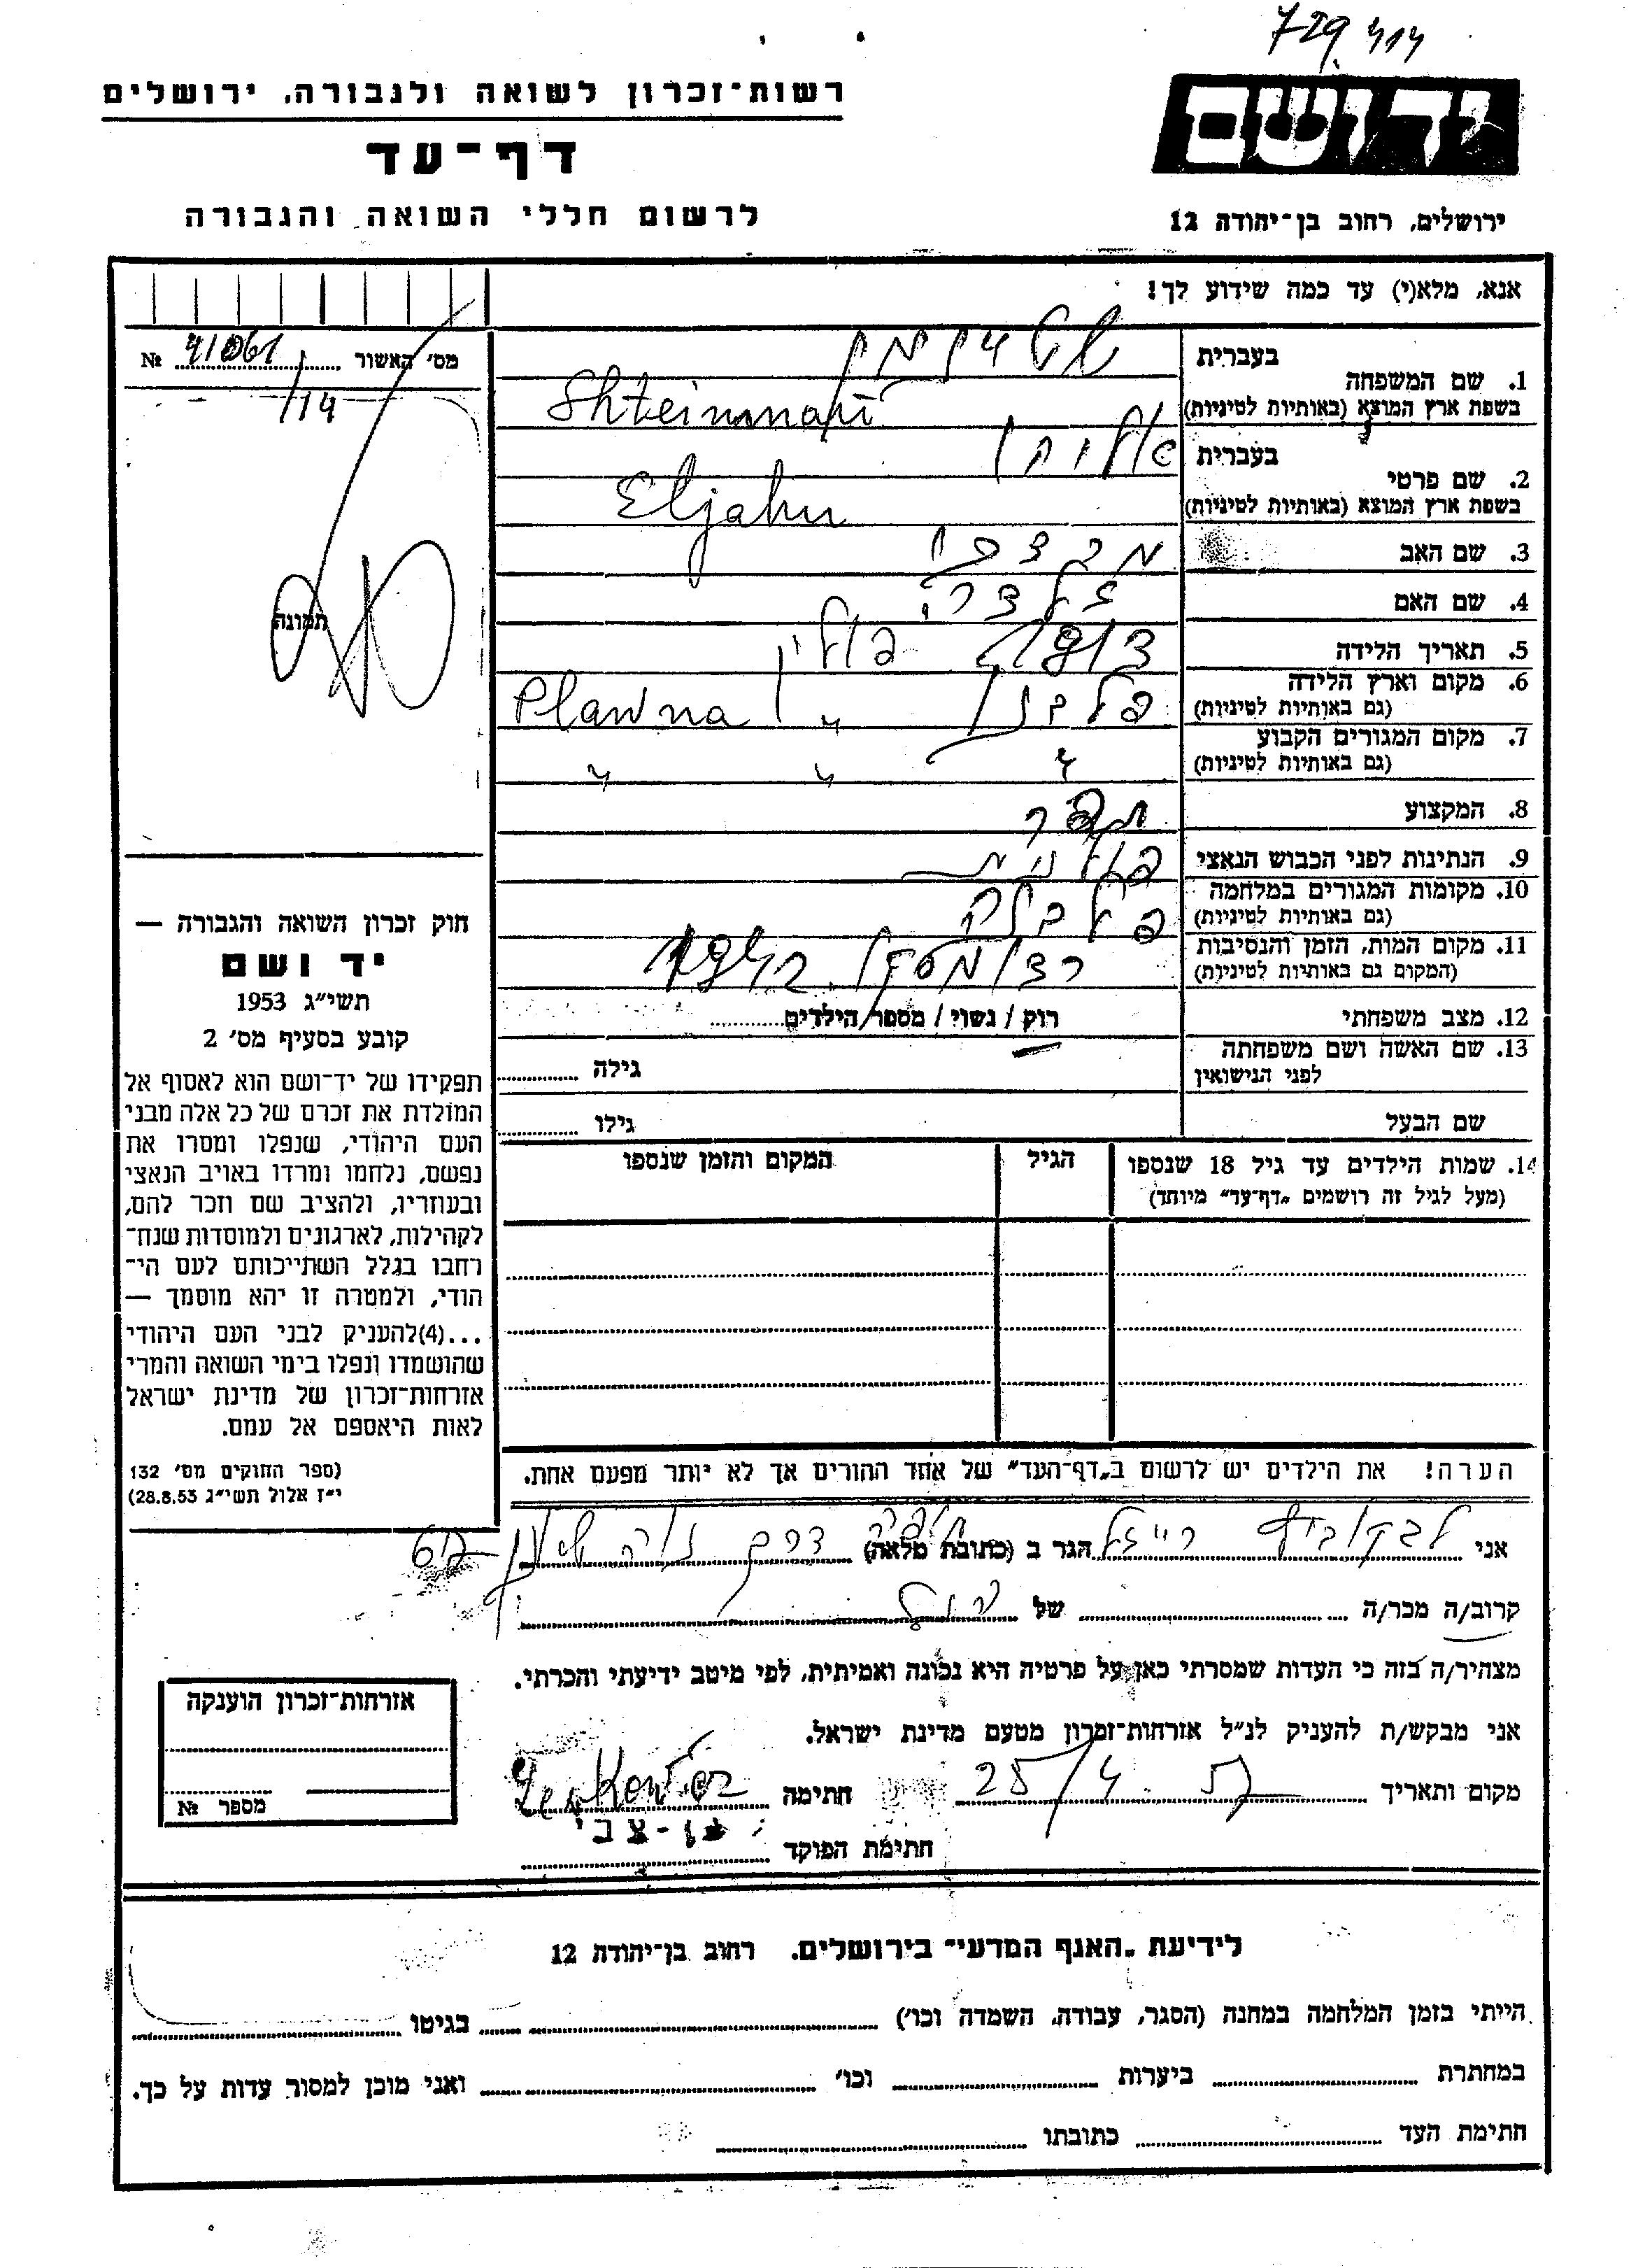 729 414
רשות־זכרון לשואה ולגבורה, ירושלים
יד ושם
דף־עד
לרשום חללי השואה והגבורה
ירושלים, רחוב בן־יהודה 12
אנא, מלא(י) עד כמה שידוע לך!
מס׳ האשור 41061 №
14
תמונה
1. שם המשפחה
בעברית שטיינמן
בשפת ארץ המוצא (באותיות לטיניות) Shteinman
2. שם פרטי
בעברית אליהו
בשפת ארץ המוצא (באותיות לטיניות) Eljahu
3. שם האב מרדכי
4. שם האם
5. תאריך הלידה
6. מקום וארץ הלידה פולין
(גם באותיות לטיניות) Plawna
7. מקום המגורים הקבוע
(גם באותיות לטיניות) " " "
8. המקצוע
9. הנתינות לפני הכבוש הנאצי פולנית
10. מקומות המגורים במלחמה
(גם באותיות לטיניות)
11. מקום המות, הזמן והנסיבות רדומסק
(המקום גם באותיות לטיניות)
12. מצב משפחתי רוק / נשוי / מספר הילדים
13. שם האשה ושם משפחתה
לפני הנישואין גילה
שם הבעל גילו
14. שמות הילדים עד גיל 18 שנספו הגיל המקום והזמן שנספו
(מעל לגיל זה רושמים „דף־עד״ מיוחד)
הערה! את הילדים יש לרשום ב„דף־העד״ של אחד ההורים אך לא יותר מפעם אחת.
חוק זכרון השואה והגבורה —
יד ושם
תשי״ג 1953
קובע בסעיף מס׳ 2
תפקידו של יד־ושם הוא לאסוף אל
המולדת את זכרם של כל אלה מבני
העם היהודי, שנפלו ומסרו את
נפשם, נלחמו ומרדו באויב הנאצי
ובעוזריו, ולהציב שם וזכר להם,
לקהילות, לארגונים ולמוסדות שנח־
רחבו בגלל השתייכותם לעם הי־
הודי, ולמטרה זו יהא מוסמך —
...(4)להעניק לבני העם היהודי
שהושמדו ונפלו בימי השואה והמרי
אזרחות־זכרון של מדינת ישראל
לאות היאספם אל עמם.
(ספר החוקים מס׳ 132
י״ז אלול תשי״ג 28.8.53)
אני לבקוביץ רייזל הגר ב (כתובת מלאה) חיפה דרך
קרוב/ה מכר/ה של
מצהיר/ה בזה כי העדות שמסרתי כאן על פרטיה היא נכונה ואמיתית, לפי מיטב ידיעתי והכרתי.
אני מבקש/ת להעניק לנ״ל אזרחות־זכרון מטעם מדינת ישראל.
מקום ותאריך 25/4. 57 חתימה
חתימת הפוקד בן-צבי
אזרחות־זכרון הוענקה
מספר №
לידיעת „האגף המדעי״ בירושלים. רחוב בן־יהודת 12
הייתי בזמן המלחמה במחנה (הסגר, עבודה, השמדה וכו׳) בגיטו
במחתרת ביערות וכו׳ ואני מוכן למסור עדות על כך.
חתימת העד כתובתו